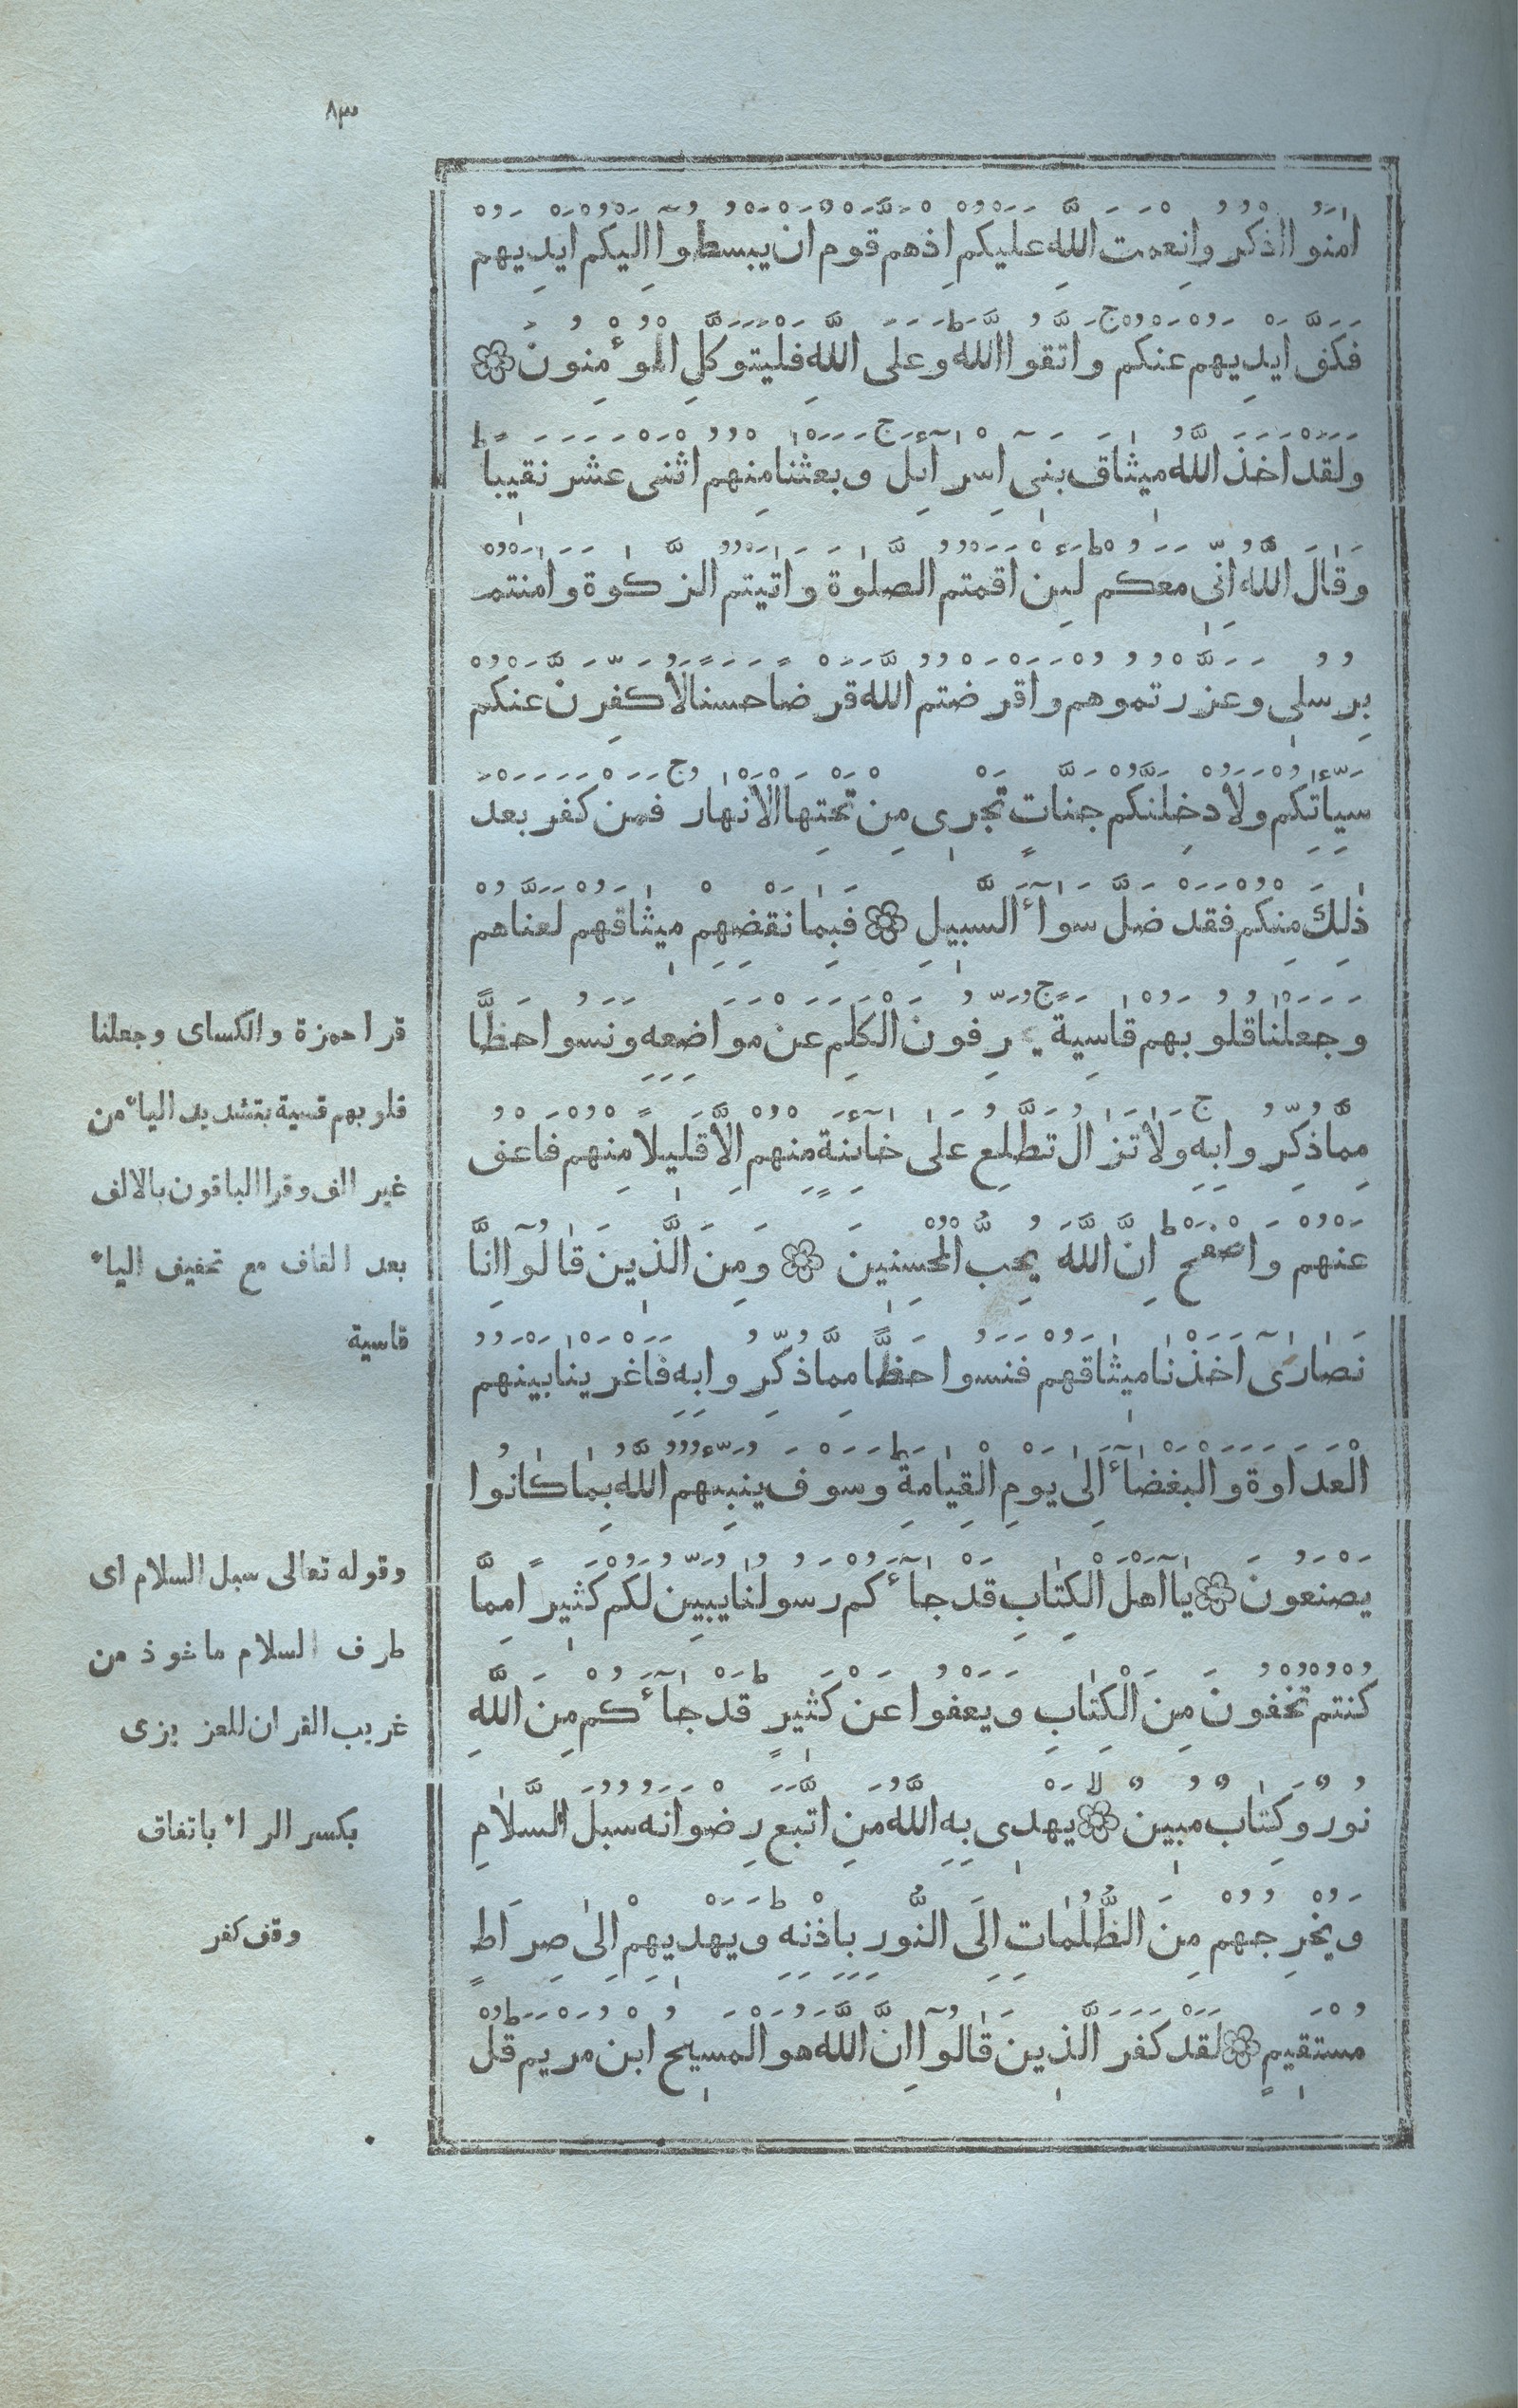 ٨٣
اٰمَنُوا اذْكُرُوا نِعْمَتَ اللَّهِ عَلَيْكُمْ اِذْهَمَّ قَوْمٌ اَنْ يَبْسُطُوٓا اِلَيْكُمْ اَيْدِيَهُمْ
فَكَفَّ اَيْدِيَهُمْ عَنْكُمْ ج وَاتَّقُوا اللَّهَ ط وَعَلَى اللَّهِ فَلْيَتَوَكَّلِ الْمُؤْمِنُونَ
وَلَقَدْ اَخَذَ اللَّهُ مِيثَاقَ بَنِىٓ اِسْرَآئِلَ ج وَبَعَثْنَا مِنْهُمُ اثْنَىْ عَشَرَ نَقِيبًا ط
وَقَالَ اللَّهُ اِنِّى مَعَكُمْ ط لَئِنْ اَقَمْتُمُ الصَّلٰوةَ وَاٰتَيْتُمُ الزَّكٰوةَ وَاٰمَنْتُمْ
بِرُسُلِى وَعَزَّرْتُمُوهُمْ وَاَقْرَضْتُمُ اللَّهَ قَرْضًا حَسَنًا لَاُكَفِّرَنَّ عَنْكُمْ
سَيِّاٰتِكُمْ وَلَاُدْخِلَنَّكُمْ جَنَّاتٍ تَجْرِى مِنْ تَحْتِهَا الْاَنْهَارُ ج فَمَنْ كَفَرَ بَعْدَ
ذٰلِكَ مِنْكُمْ فَقَدْ ضَلَّ سَوَآءَ السَّبِيلِ فَبِمَا نَقْضِهِمْ مِيثَاقَهُمْ لَعَنَّاهُمْ
وَجَعَلْنَا قُلُوبَهُمْ قَاسِيَةً ج يُحَرِّفُونَ الْكَلِمَ عَنْ مَوَاضِعِهِ وَنَسُوا حَظًّا
مِمَّا ذُكِّرُوا بِهِ ج وَلَا تَزَالُ تَطَّلِعُ عَلٰى خَآئِنَةٍ مِنْهُمْ اِلَّا قَلِيلًا مِنْهُمْ فَاعْفُ
عَنْهُمْ وَاصْفَحْ ط اِنَّ اللَّهَ يُحِبُّ الْمُحْسِنِينَ وَمِنَ الَّذِينَ قَالُوٓا اِنَّا
نَصَارٰىٓ اَخَذْنَا مِيثَاقَهُمْ فَنَسُوا حَظًّا مِمَّا ذُكِّرُوا بِهِ فَاَغْرَيْنَا بَيْنَهُمُ
الْعَدَاوَةَ وَالْبَغْضَآءَ اِلٰى يَوْمِ الْقِيَامَةِ ط وَسَوْفَ يُنَبِّئُهُمُ اللَّهُ بِمَا كَانُوا
يَصْنَعُونَ يَآ اَهْلَ الْكِتَابِ قَدْ جَآءَكُمْ رَسُولُنَا يُبَيِّنُ لَكُمْ كَثِيرًا مِمَّا
كُنْتُمْ تُخْفُونَ مِنَ الْكِتَابِ وَيَعْفُوا عَنْ كَثِيرٍ ط قَدْ جَآءَكُمْ مِنَ اللَّهِ
نُورٌ وَكِتَابٌ مُبِينٌ لا يَهْدِى بِهِ اللَّهُ مَنِ اتَّبَعَ رِضْوَانَهُ سُبُلَ السَّلَامِ
وَيُخْرِجُهُمْ مِنَ الظُّلُمَاتِ اِلَى النُّورِ بِاِذْنِهِ ط وَيَهْدِيهِمْ اِلٰى صِرَاطٍ
مُسْتَقِيمٍ لَقَدْ كَفَرَ الَّذِينَ قَالُوٓا اِنَّ اللَّهَ هُوَ الْمَسِيحُ ابْنُ مَرْيَمَ ط قُلْ
قرا حمزة والكساى وجعلنا
قلوبهم قسية بتشديد الياء من
غير الف وقرا الباقون بالالف
بعد القاف مع تخفيف الياء
قاسية
وقوله تعالى سبل السلام اى
طرف السلام ماخوذ من
غريب القران للعزيزى
بكسر الراء باتفاق
وقف كفر